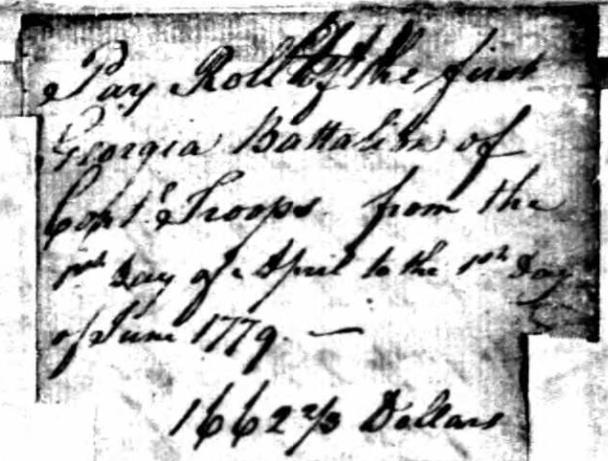 Pay Roll of the first
Georgia Battalion of
Cont.l Troops from the
1st Day of April to the 1st Day
of June 1779. —
1662 2/3 Dollars